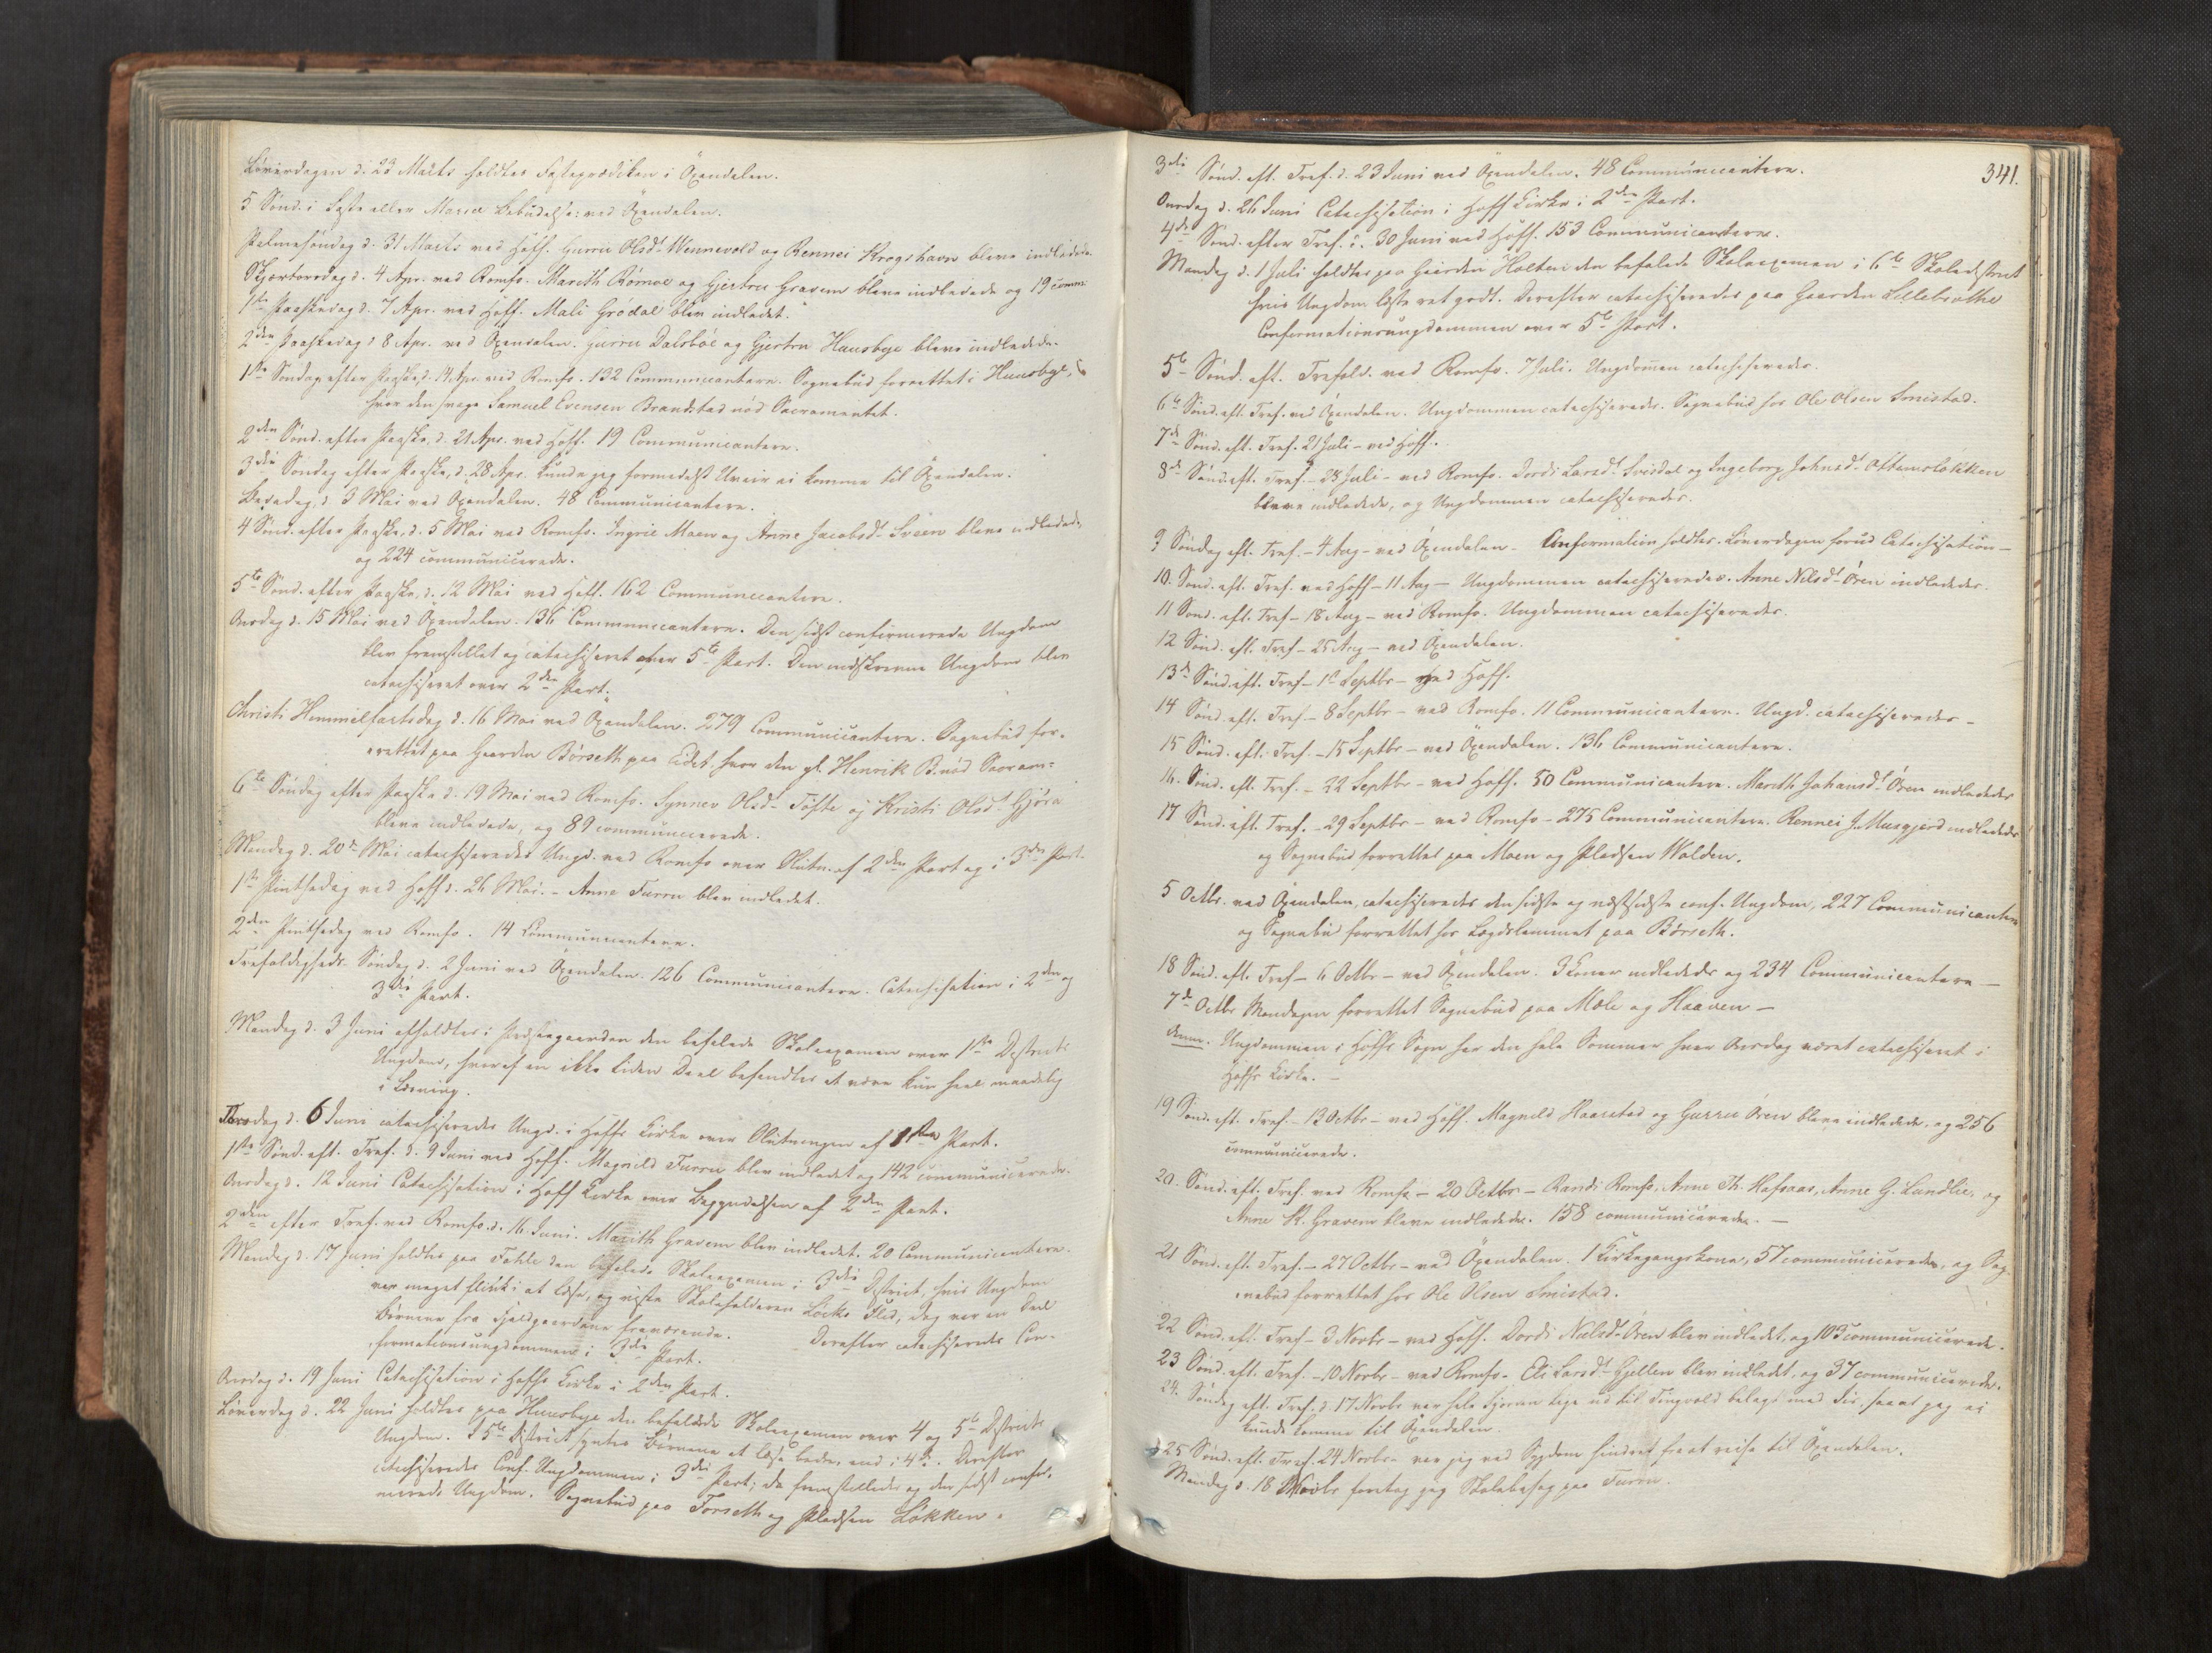 Löverdagen d. 23 Marts holdtes Fasteprædiken i Öxendalen.
5 Sönd. i Faste eller Mariæ Bebudelse: ved Öxendalen.
Palmesöndag d. 31 Marts ved Hoff. Gurru Olsdr. Wennevold og Rennei Krogshavn bleve indledede.
Skjærtorsdag d. 4 Apr. ved Romfo. Marith Römoe og Gjertru Gravem bleve indledede og 19 comm:
1ste Paaskedag d. 7 Apr. ved Hoff. Mali Grödal blev indledet.
2den Paaskedag d 8 Apr. ved Öxendalen. Gurru Dalsböe og Gjertru Hausbye bleve indledede.
1ste Söndag efter Paaske, d. 14 Apr. ved Romfo. 132 Communicantere. Sognebud forrettet i Huusbye,
hvor den syge Samuel Evensen Brandstad nöd Sacramentet.
2den Sönd. efter Paaske, d. 21 Apr. ved Hoff. 19 Communicantere.
3die Söndag efter Paaske, d. 28 Apr. kunde jeg formedelst Uveir ei komme til Öxendalen.
Bededag, d. 3 Mai ved Öxendalen. 48 Communicantere.
4 Sönd. efter Paaske, d. 5 Mai ved Romfo. Ingrie Moen og Anne Jacobsdr. Sveen bleve indledede,
og 224 communicerede.
5te Sönd. efter Paaske, d. 12 Mai ved Hoff. 162 Communicantere.
Onsdag d. 15 Mai ved Öxendalen. 136 Communicantere. Den sidst confirmerede Ungdom
blev fremstillet og catechiseret over 5te Part. Den indskrevne Ungdom blev
catechiseret over 2den Part.
Christi Himmelfartsdag d. 16 Mai ved Öxendalen. 279 Communicantere. Sognebud for-
rettet paa Gaarden Börseth paa Eidet, hvor den gl. Henrik B. nöd Sacram:
6te Söndag efter Paaske d. 19 Mai ved Romfo. Synnev Olsd. Töfte og Kristi Olsdr. Gjöra
bleve indledede, og 89 communicerede.
Mandag d. 20de Mai catechiseredes Ungd. ved Romfo over Slutn. af 2den Part og i 3die Part.
1ste Pintsedag ved Hoff d. 26 Mai. - Anne Furru blev indledet.
2den Pintsedag ved Romfo. 14 Communicantere.
Trefoldigheds Söndag d. 2 Juni ved Öxendalen. 126 Communicantere. Catechisation i 2den og
3die Part.
Mandag d. 3 Juni afholdtes i Præstegaarden den befalede Skoleexamen over 1ste Districts
Ungdom, hvoraf en ikke liden Deel befandtes at være kun heel maadelig
i Læsning.
Torsdag d. 6 Juni catechiseredes Ungd. i Hoffs Kirke over Slutningen af 1ste Part.
1ste Sönd. eft. Tref. d. 9 Juni ved Hoff. Magnild Furru blev indledet og 142 communicerede.
Onsdag d. 12 Juni Catechisation i Hoff Kirke over Begyndelsen af 2den Part.
2den efter Tref. ved Romfo d. 16 Juni. Marith Gravem blev indledet. 20 Communicantere.
Mandag d. 17 Juni holdtes paa Fahle den befalede Skoleexamen i 3die District, hvis Ungdom
var meget flink i at læse, og viste Skoleholderen Flid, dog var en Deel
Börnene fra Fjeldgaardene fraværende. Derefter catechiseredes Con-
firmationsungdommen i 3die Part.
Onsdag d. 19 Juni Catechisation i Hoffs Kirke i 2den Part.
Löverdag d. 22 Juni holdtes paa Huusbye den befalede Skoleexamen over 4 og 5te Districts
Ungdom. I 5te District syntes Börnene at læse bedre, end i 4de. Derefter
catechiseredes Conf. Ungdommen i 3die Part; da fremstilledes og den sidst confir-
merede Ungdom. Sognebud paa Forseth og Pladsen Løkken.
341.
3die Sönd. eft. Tref. d. 23 Juni ved Öxendalen. 48 Communicantere.
Onsdag d. 26 Juni Catechisation i Hoff Kirke i 2den Part.
4de Sönd. efter Tref. d. 30 Juni ved Hoff. 153 Communicantere.
Mandag d. 1 Juli holdtes paa Gaarden Holten den befalede Skoleexamen i 6te Skoledistrict
hvis Ungdom læste ret godt. Derefter catechiseredes paa Gaarden Lillebrøthe
Confirmationsungdommen over 5te Part.
5te Sönd. eft. Trefold. ved Romfo. 7 Juli. Ungdommen catechiseredes.
6te Sönd. eft. Tref. ved Öxendalen. Ungdommen catechiseredes. Sognebud hos Ole Olsen Smistad.
7de Sönd. eft. Tref. 21 Juli - ved Hoff.
8de Sönd. eft. Tref. - 28 Juli - ved Romfo. Dordi Larsdr. Svisdal og Ingeborg Johnsdr. Ottemsløkken
bleve indledede, og Ungdommen catechiseredes.
9 Söndag eft. Tref. - 4 Aug - ved Öxendalen - Confirmation holdtes. Löverdagen forud Catechisation -
10. Sönd. eft. Tref. ved Hoff - 11 Aug - Ungdommen catechiseredes. Anne Nilsdr. Ören indledes.
11 Sönd. eft. Tref - 18 Aug - ved Romfo. Ungdommen catechiseredes.
12 Sönd. eft. Tref - 25 Aug - ved Öxendalen.
13de Sönd. eft. Tref - 1te Septbr - ved Hoff.
14 Sönd. eft. Tref - 8 Septbr - ved Romfo. 11 Communicantere. Ungd. catechiseredes -
15 Sönd. eft. Tref. - 15 Septbr - ved Öxendalen. 136 Communicantere.
16. Sönd. eft. Tref. - 22 Septbr - ved Hoff. 50 Communicantere. Marith Johansdr. Ören indledede
17 Sönd. eft. Tref. - 29 Septbr - ved Romfo - 275 Communicantere. Rennei J. Musgjerd indledede
og Sognebud forrettet paa Moen og Pladsen Wolden.
5 Octbr. ved Öxendalen, catechiseredes den sidste og næstsidste conf. Ungdom, 227 Communicantere
og Sognebud forrettet hos Lægdslemmet paa Börseth.
18 Sönd. eft. Tref - 6 Octbr - ved Öxendalen. 3 Koner indledede og 234 Communicantere -
7de Octbr Mandagen forrettet Sognebud paa Mæle og Haaven -
Anm. Ungdommen i Hoffs Sogn har den hele Sommer hver Onsdag været catechiseret i
Hoffs Kirke. -
19 Sönd. eft. Tref. - 13 Octbr - ved Hoff. Magnild Haarstad og Gurru Ören bleve indledede, og 256
communicerede.
20. Sönd. eft. Tref. ved Romfo - 20 Octbr - Randi Romfo, Anne Th. Hafsaas, Anne G. Lundlie, og
Anne K. Gravem bleve indledede. 158 communicerede. -
21 Sönd. eft. Tref. - 27 Octbr - ved Öxendalen. 1 Kirkegangskone, 57 communicerede, og Sog-
nebud forrettet hos Ole Olsen Smistad.
22 Sönd. eft. Tref - 3 Novbr - ved Hoff. Dordi Nielsdr. Ören blev indledet, og 105 communicerede.
23 Sönd. eft. Tref. - 10 Novbr - ved Romfo. Eli Larsdr. Hjellen blev indledet, og 37 communicerede.
24. Söndag eft. Tref. d. 17 Novbr var hele Fjorden lige ud til Tingvold belagt med Iis, saa at jeg ei
kunde komme til Öxendalen.
25 Sönd. eft. Tref. 24 Novbr - var jeg ved Sygdom hindret fra at reise til Öxendalen.
Mandag d. 18 Novbr foretog jeg Skolebesøg paa Furru.